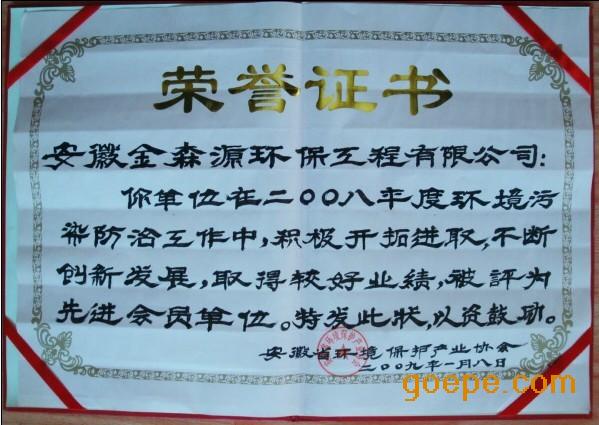 荣誉证书
安徽金森源环保工程有限公司：
你单位在二〇〇八年度环境污
染防治工作中，积极开拓进取，不断
创新发展，取得较好业绩，被评为
先进会员单位。特发此状，以资鼓励。
安徽省环境保护产业协会
二〇〇九年一月八日
goepe.com